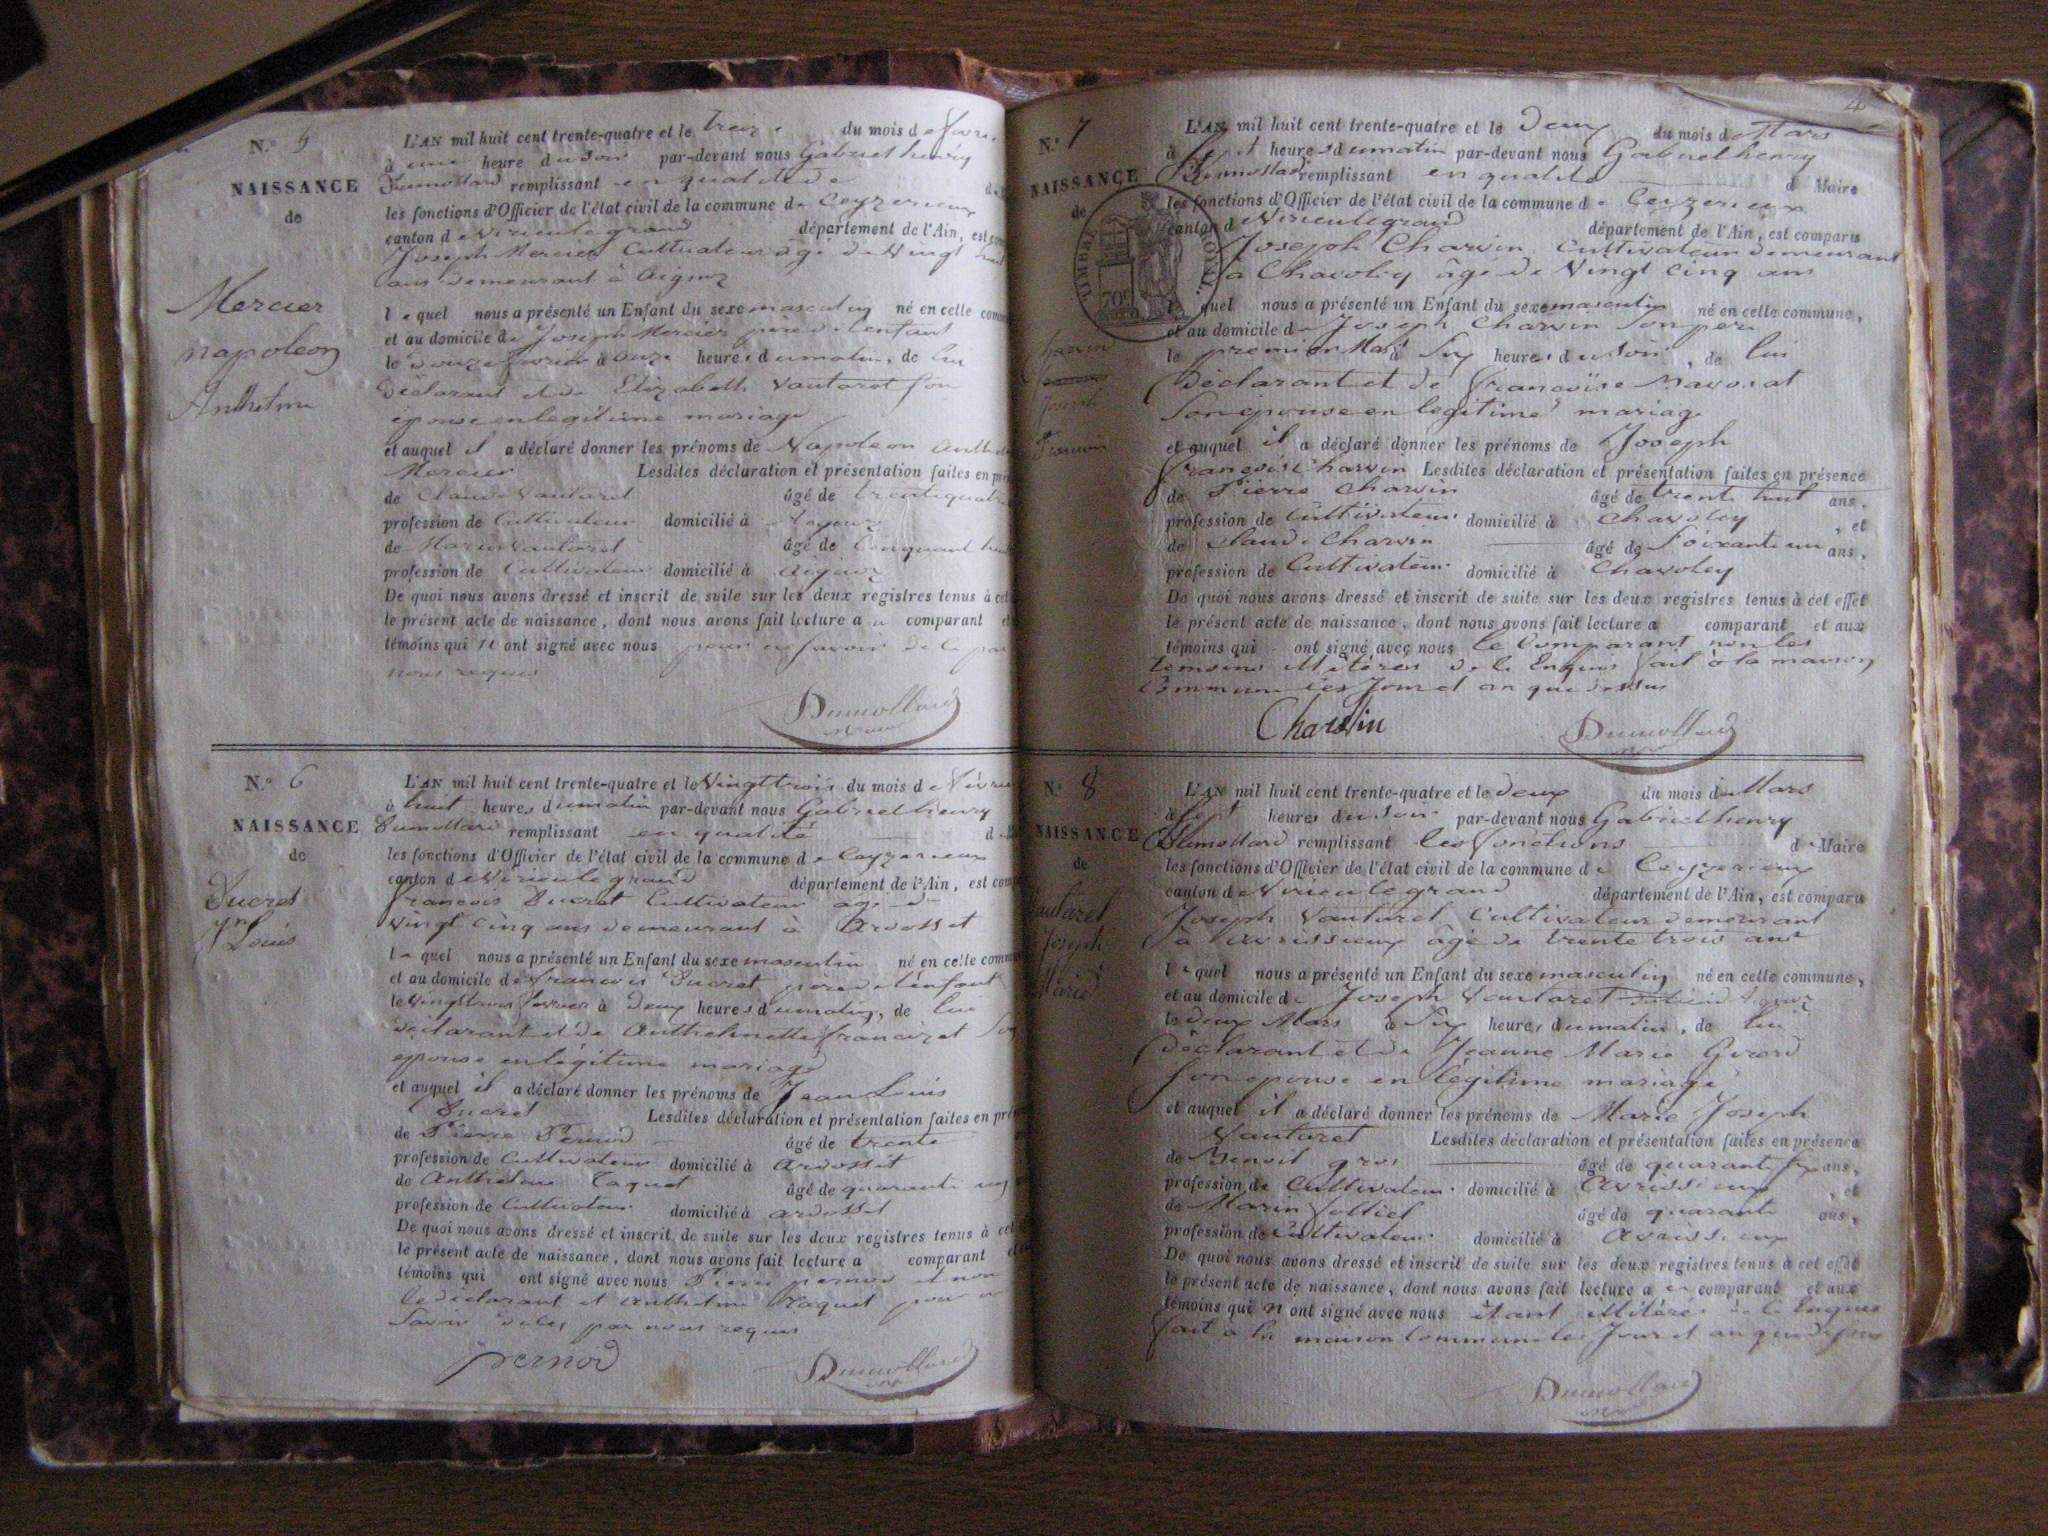 N.º 5
NAISSANCE
de
Mercier
napoleon
Anthelme
L'AN mil huit cent trente-quatre et le treize du mois de
à une heure du soir par-devant nous Gabriel henry
Dumollard remplissant en qualité de
les fonctions d'Officier de l'état civil de la commune de Ceyzerieux
canton de Virieu le grand département de l'Ain, est
Joseph Mercier Cultivateur âgé de Vingt huit
ans demeurant à Aignoz
lequel nous a présenté un Enfant du sexe masculin né en cette
et au domicile de Joseph Mercier père de l'enfant
le douze fevrier à onze heures du matin, de lui
déclarant et de Elizabeth Vautaret son
épouse en legitime mariage
et auquel il a déclaré donner les prénoms de Napoleon
Mercier Lesdites déclaration et présentation faites en
de Claude Vautaret âgé de trente quatre
profession de Cultivateur domicilié à
de Marin Vautaret âgé de Cinquant huit
profession de Cultivateur domicilié à Aignoz
De quoi nous avons dressé et inscrit de suite sur les deux registres tenus à cet
le présent acte de naissance, dont nous avons fait lecture au comparant
témoins qui n ont signé avec nous pour ne savoir de ce par
nous requis
Dumollard
N.º 6
NAISSANCE
de
Ducret
Jn
Louis
L'AN mil huit cent trente-quatre et le Vingt trois du mois de
à huit heures du matin par-devant nous Gabriel henry
Dumollard remplissant en qualité
les fonctions d'Officier de l'état civil de la commune de Ceyzerieux
canton de Virieu le grand département de l'Ain, est
francois Ducret Cultivateur age de
vingt cinq ans demeurant à Ardosset
lequel nous a présenté un Enfant du sexe masculin né en cette
et au domicile de francois Ducret père de l'enfant
le vingt trois fevrier à deux heures du matin, de lui
déclarant et de Anthelmette francizet Son
epouse en légitime mariage
et auquel il a déclaré donner les prénoms de Jean Louis
Ducret Lesdites déclaration et présentation faites en
de Pierre Pernod âgé de trente
profession de Cultivateur domicilié à Ardosset
de Anthelme Taquet âgé de quarante
profession de Cultivateur domicilié à ardosset
De quoi nous avons dressé et inscrit de suite sur les deux registres tenus à cet
le présent acte de naissance, dont nous avons fait lecture a comparant
témoins qui ont signé avec nous Pierre pernod et non
le déclarant et Anthelme Taquet pour ne
Savoir de ce par nous requis
pernod
Dumollard
4
N.º 7
NAISSANCE
de
TIMBRE ROYAL.
70c
Charvin
Joseph
Francois
L'AN mil huit cent trente-quatre et le Deux du mois de Mars
à heures du matin par-devant nous Gabriel henry
Dumollard remplissant en qualité de Maire
les fonctions d'Officier de l'état civil de la commune de Ceyzerieux
canton de Virieu le grand département de l'Ain, est comparu
Joseph Charvin Cultivateur demeurant
a Chavoley âgé de Vingt Cinq ans
lequel nous a présenté un Enfant du sexe masculin né en cette commune,
et au domicile de Joseph Charvin Son pere
le premier Mars à Six heures du soir, de lui
Déclarant et de françoise Mavorat
Son épouse en legitime mariage
et auquel il a déclaré donner les prénoms de Joseph
françois Charvin Lesdites déclaration et présentation faites en présence
de Pierre Charvin âgé de trente huit ans,
profession de Cultivateur domicilié à Chavoley, et
de Claude Charvin âgé de Soixante un ans,
profession de Cultivateur domicilié à Chavoley
De quoi nous avons dressé et inscrit de suite sur les deux registres tenus à cet effet
le présent acte de naissance, dont nous avons fait lecture a comparant et aux
témoins qui ont signé avec nous le Comparant non les
temoins illitéres de ce Enquis fait à la maison
Commune les Jour et an que dessus
Charvin
Dumollard
N.º 8
NAISSANCE
de
Vautaret
Joseph
Marie
L'AN mil huit cent trente-quatre et le deux du mois de Mars
à sept heures du soir par-devant nous Gabriel henry
Dumollard remplissant les fonctions de Maire
les fonctions d'Officier de l'état civil de la commune de Ceyzerieux
canton de Virieu le grand département de l'Ain, est comparu
Joseph Vautaret Cultivateur demeurant
à avrissieux âgé de trente trois ans
lequel nous a présenté un Enfant du sexe masculin né en cette commune,
et au domicile de Joseph Vautaret
le deux Mars à Six heures du matin, de lui
déclarant et de Jeanne Marie Girerd
Son epouse en légitime mariage
et auquel il a déclaré donner les prénoms de Marie Joseph
Vautaret Lesdites déclaration et présentation faites en présence
de Benoit gros âgé de quarante six ans,
profession de Cultivateur domicilié à avrissieux, et
de Marin Jolliet âgé de quarante ans,
profession de Cultivateur domicilié à avrissieux
De quoi nous avons dressé et inscrit de suite sur les deux registres tenus à cet effet
le présent acte de naissance, dont nous avons fait lecture au comparant et aux
témoins qui n ont signé avec nous étant illitéres de ce Enquis
fait à la maison Commune les Jour et an que dessus
Dumollard